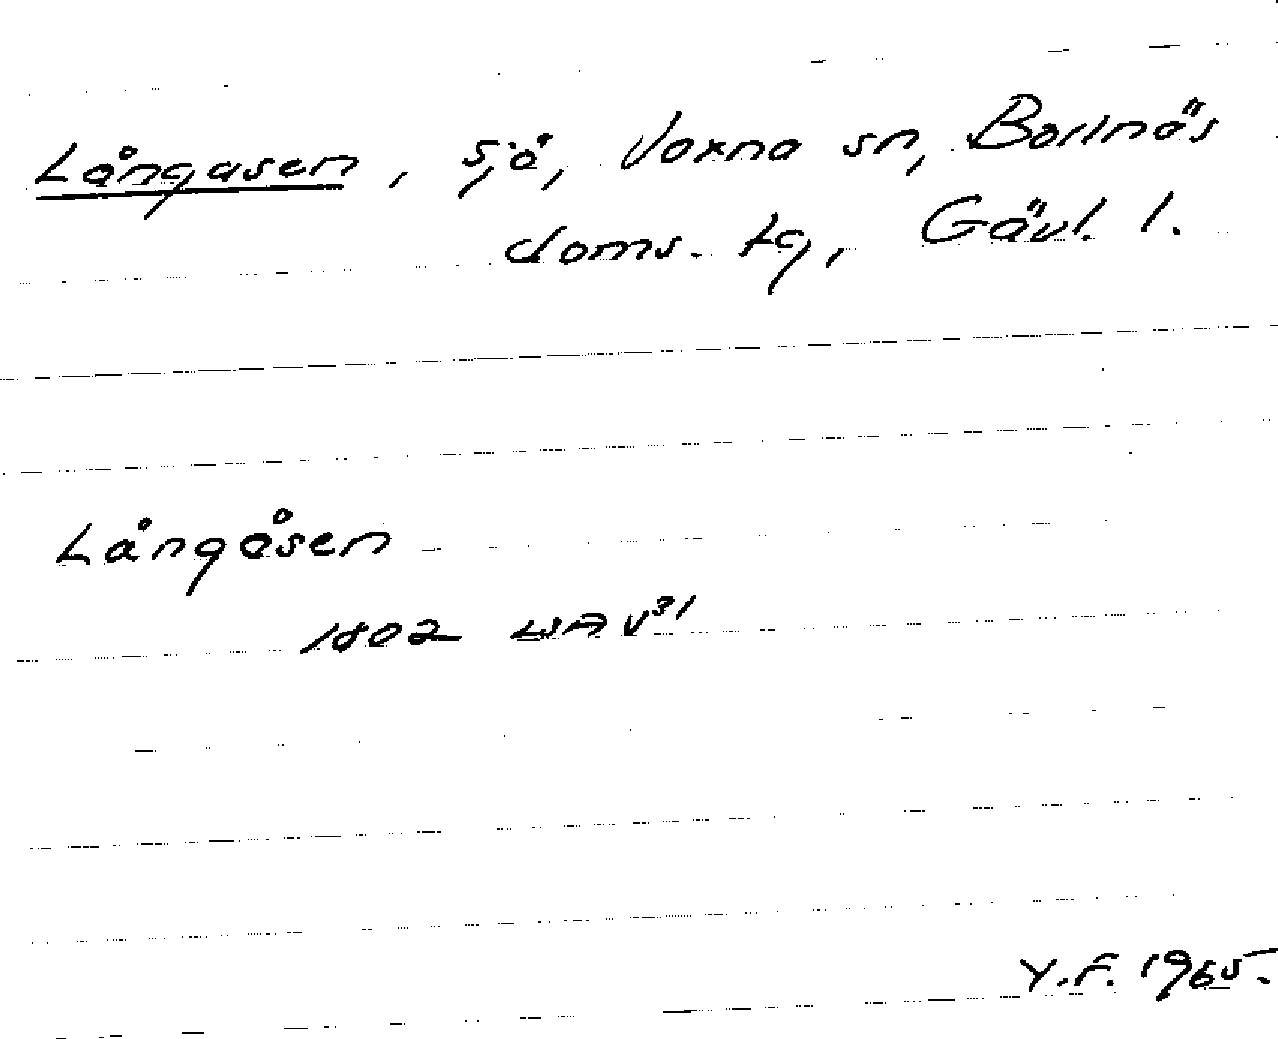 Långasen, sjö, Voxna sn, Bollnäs
doms. tg, Gävl. l.
Långåsen
1802 LSA V³¹
Y.F. 1965.